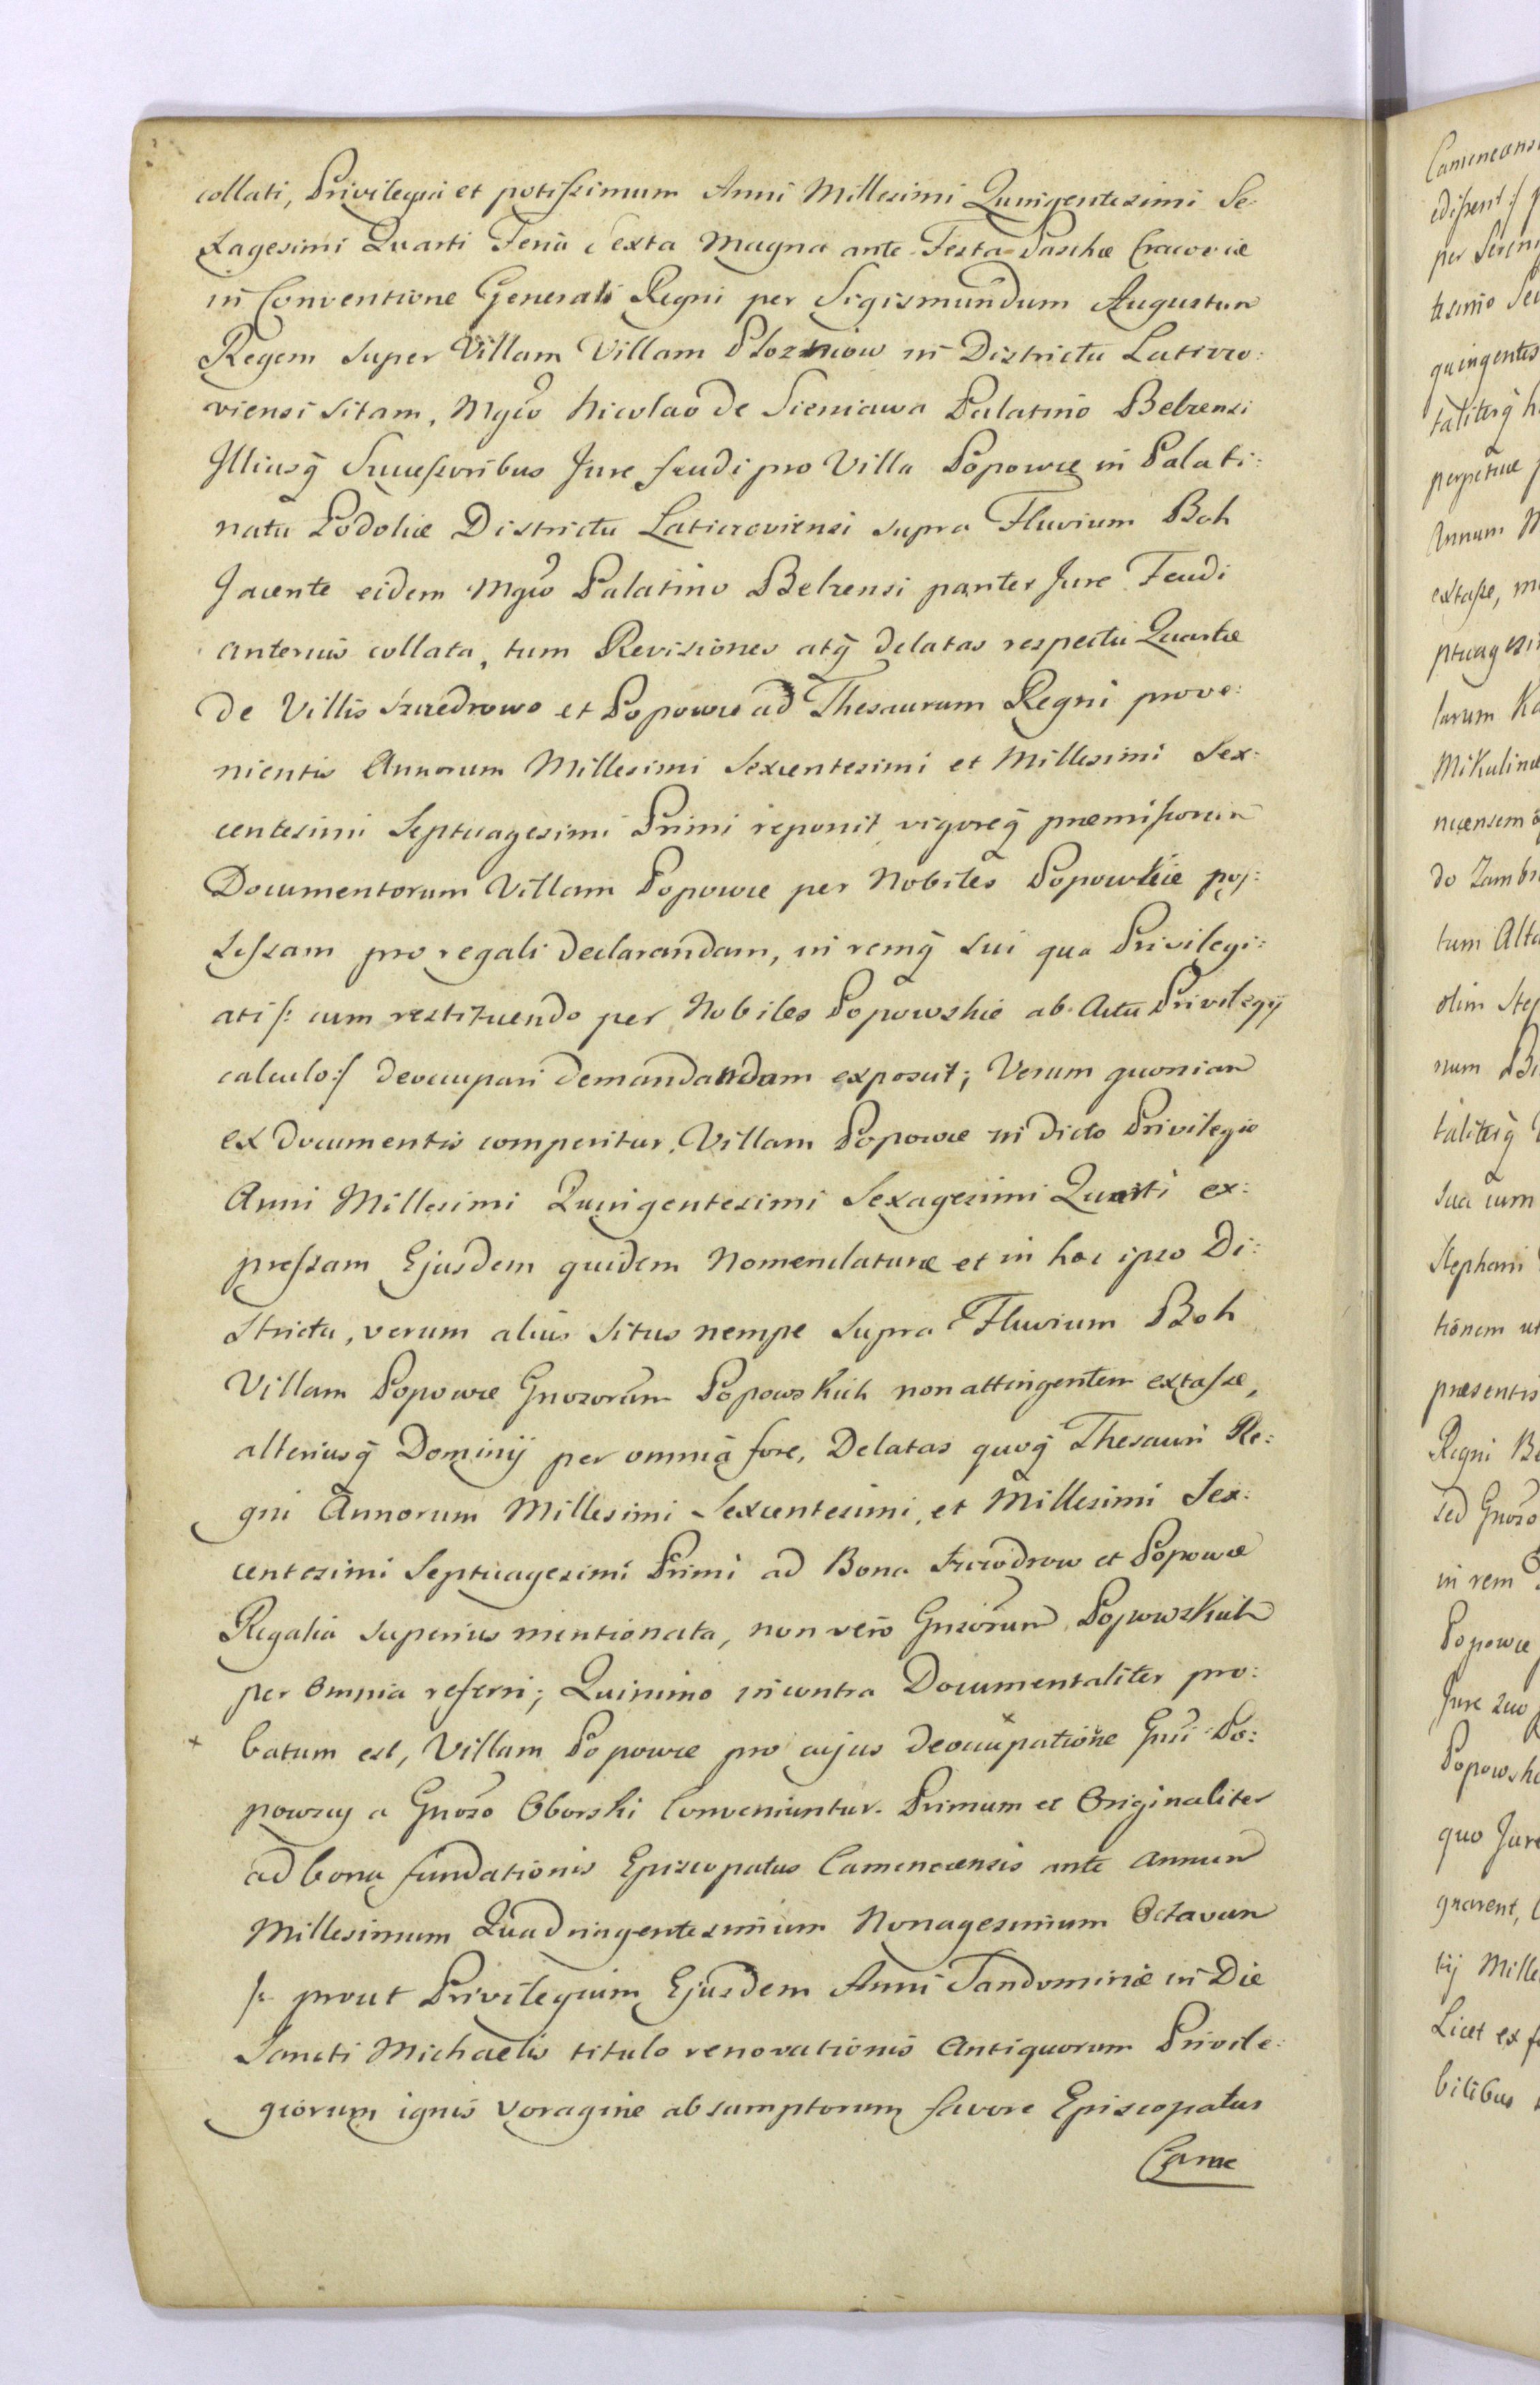 collati, Privilegia et potissimum Anni Millesimi Quingentesimi Se-
xagesimi Quarti Feria Sexta Magna ante Festa Paschæ Cracoviæ
in Conventione Generali Regni per Sigismundum Augustum
Regem super Villam Villam Ploskirow in Districtu Laticzo:
viensi sitam, Mgco Nicolao de Sieniawa Palatino Belzensi
Illiusq̃ Successoribus Jure feudi pro Villa Popowce in Palati:
natu Podoliæ Districtu Laticzoviensi supra Fluvium Boh
Jacente eidem Mgco Palatino Belzensi pariter Jure Feudi
anterius collata, tum Revisiones atq̃ delatas respectu Quartæ
de Villis Szczedrowo et Popowce ad Thesaurum Regni prove:
nientis Annorum Millesimi Sexcentesimi et Millesimi Sex:
centesimi Septuagesimi Primi reponit, vigoreq̃ præmissorum
Documentorum Villam Popowce per Nobiles Popowskie pos:
sessam pro regali declarandam, in remq̃ sui qua Privilegi:
ati /: cum restituendo per Nobiles Popowskie ab Actu Privilegij
calculo :/ deoccupari demandandam exposcit; Verum quoniam
ex documentis comperitur, Villam Popowce in dicto Privilegio
Anni Millesimi Quingentesimi Sexagesimi Quarti ex:
pressam Ejusdem quidem Nomenclaturæ et in hoc ipso Di:
strictu, verum alius situs nempe supra Fluvium Boh
Villam Popowce Gnosorum Popowskich non attingentem extasse,
alteriusq̃ Dominij per omnia fore, Delatas quoq̃ Thesauri Re:
gni Annorum Millesimi Sexcentesimi, et Millesimi Sex:
centesimi Septuagesimi Primi ad Bona Szczodrow et Popowce
Regalia superius mentionata, non vero Gnsorum Popowskich
per omnia referri; Quinimo in contra Documentaliter pro:
× batum est, Villam Popowce pro cujus deoccupatione × Gnsi Po:
powscy a Gnoso Oborski Conveniuntur. Primum et Originaliter
ad bona fundationis Episcopatus Camenecensis ante annum
Millesimum Quadringentesimum Nonagesimum Octavum
/: prout Privilegium Ejusdem Anni Sandomiriæ in Die
Sancti Michaelis titulo renovationis Antiquorum Privile:
giorum ignis voragine absumptorum favore Episcopatus
Came